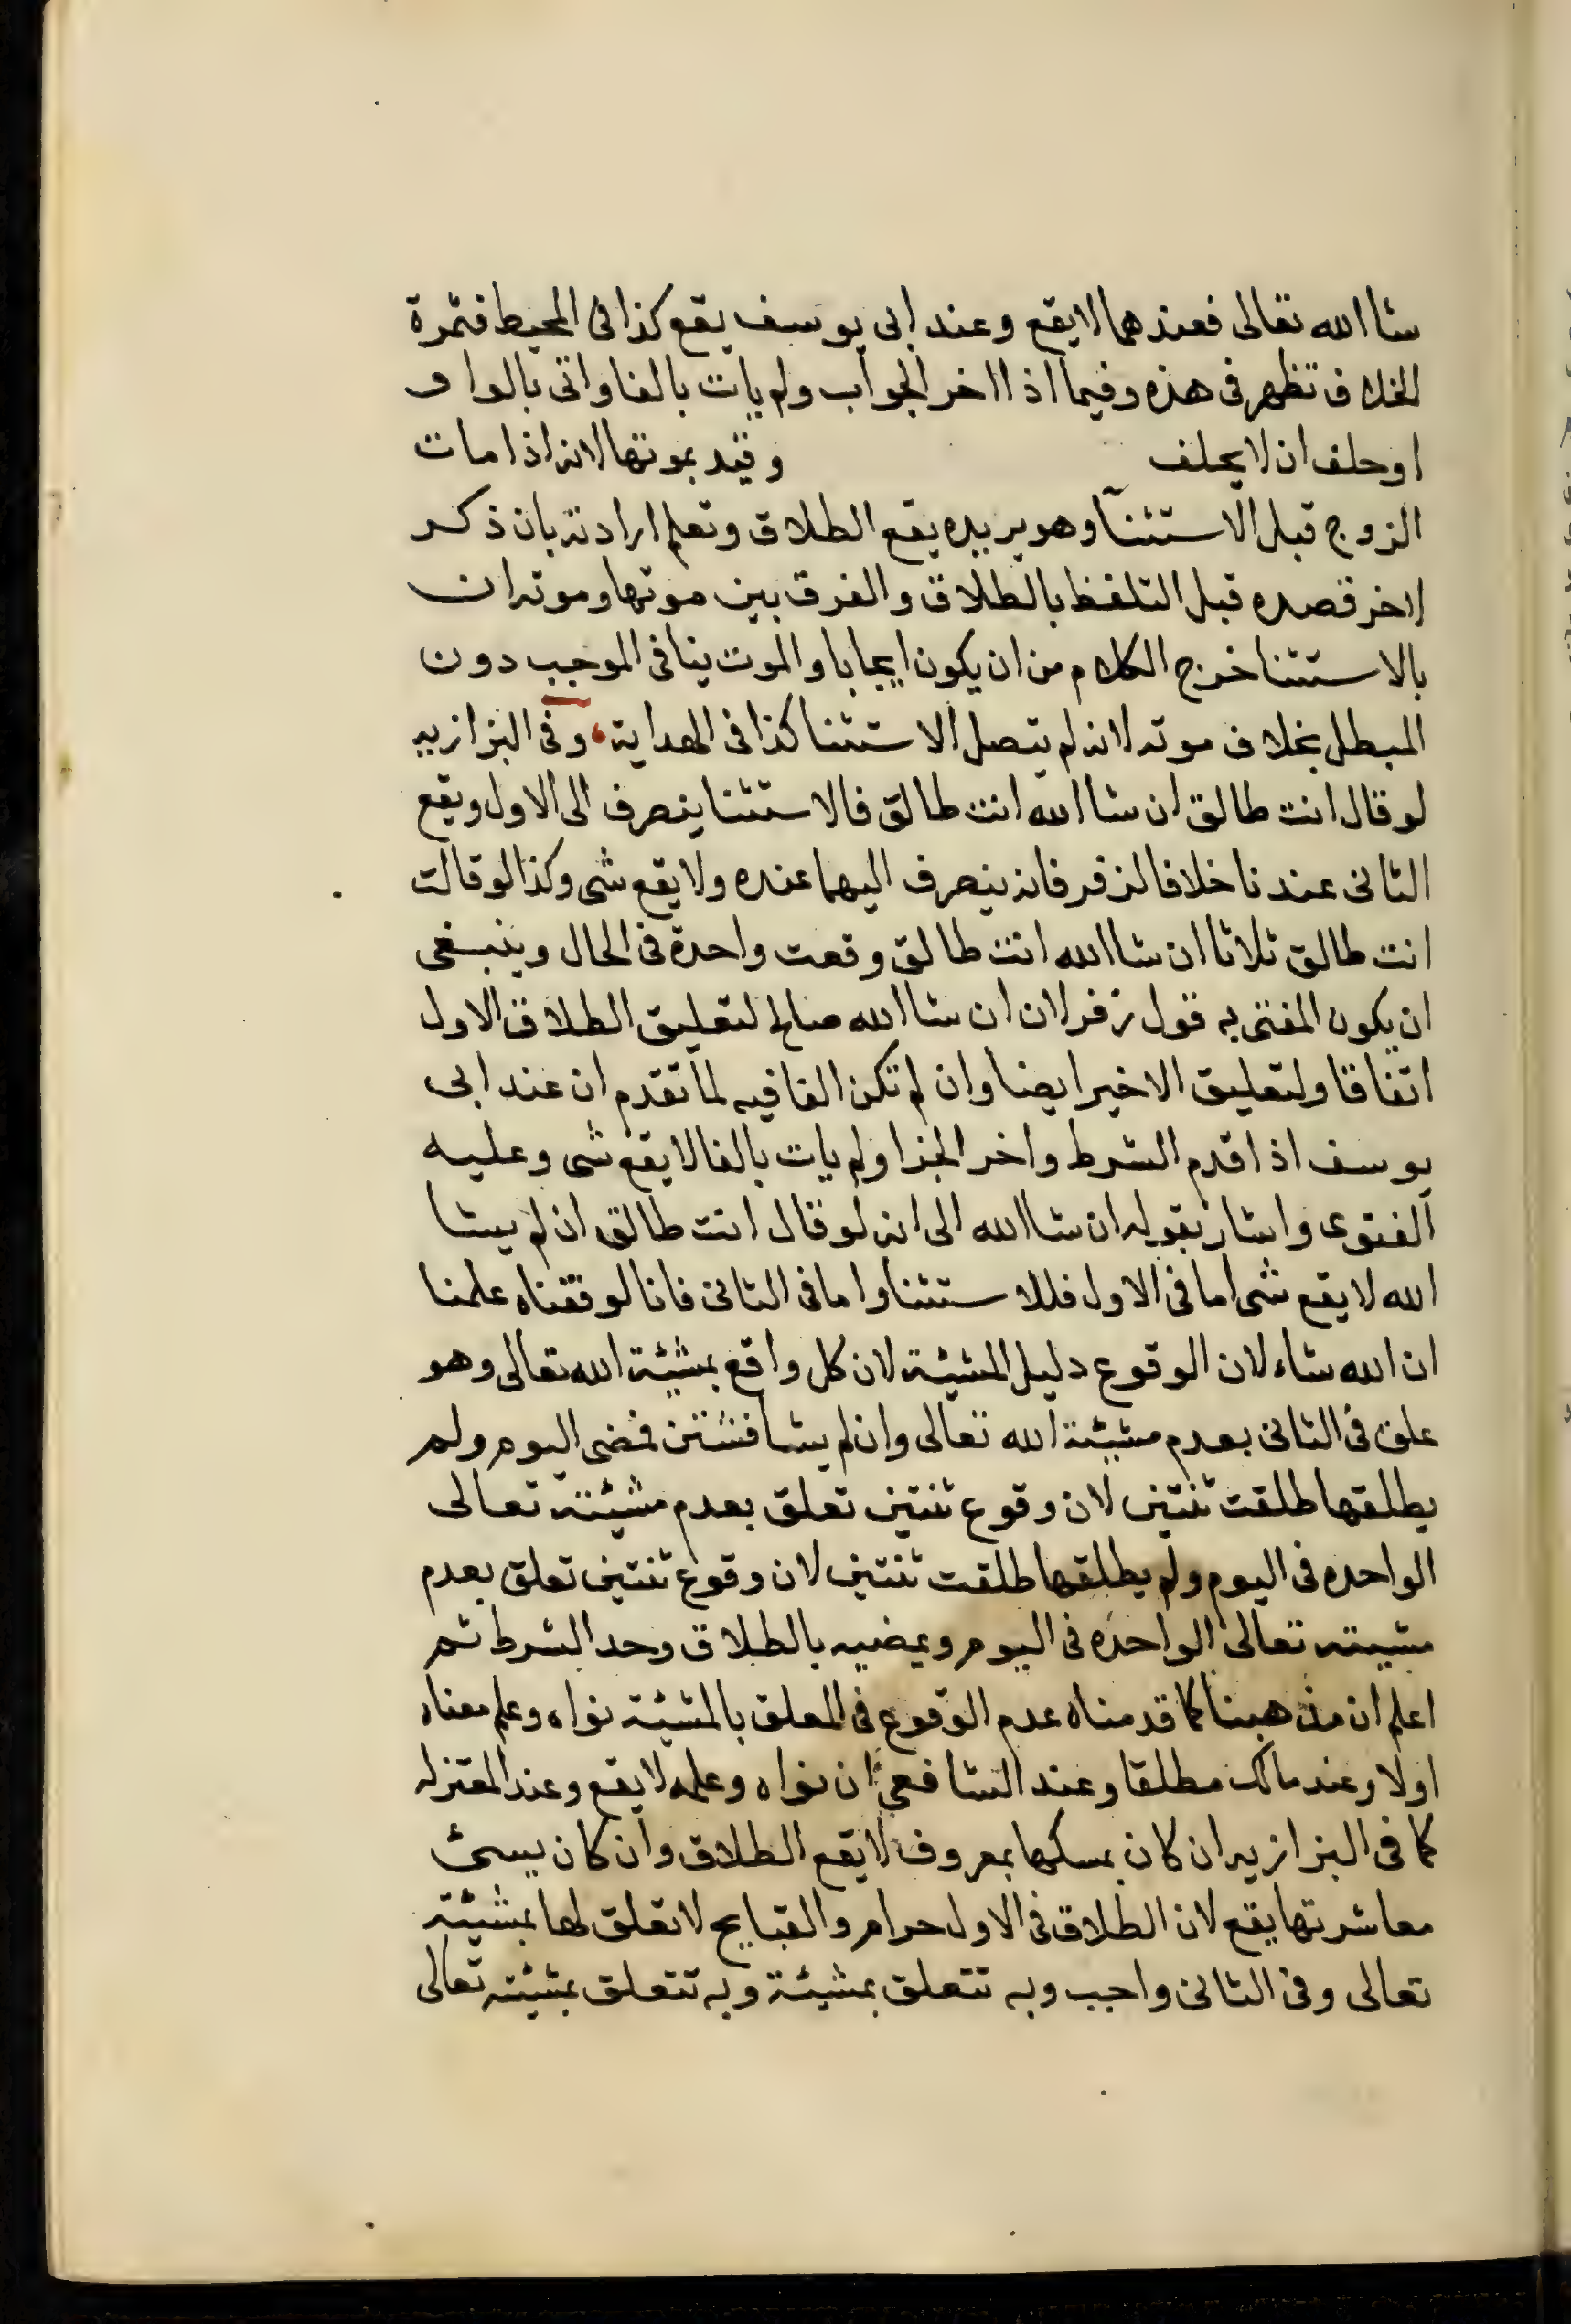 شا الله تعالى فعندهما لا يقع وعند ابى يوسف يقع كذا فى المحيط فثمرة
الخلاف تظهر فى هذه وفيما اذا اخر الجواب ولم يات بالفا واتى بالواو
او حلف ان لا يحلف وقيد بموتها لانه اذا مات
الزوج قبل الاستثنآ وهو يريده يقع الطلاق وتعلم ارادته بان ذكر
لاخر قصده قبل التلفظ بالطلاق والفرق بين موتها وموته ان
بالاستثنا خرج الكلام من ان يكون ايجابا والموت ينافى الموجب دون
المبطل بخلاف موته لانه لم يتصل الاستثنا كذا فى الهداية، وفى البزازيه
لو قال انت طالق ان شا الله انت طالق فالاستثنا ينصرف الى الاول ويقع
الثانى عندنا خلافا لزفر فانه ينصرف اليهما عنده ولا يقع شى وكذا لو قالت
انت طالق ثلاثا ان شا الله انت طالق وقعت واحدة فى الحال وينبغى
ان يكون المفتى به قول زفر لان ان شا الله صالح لتعليق الطلاق الاول
اتفاقا ولتعليق الاخير ايضا وان لم تكن الفا فيه لما تقدم ان عند ابى
يوسف اذا قدم الشرط واخر الجزا ولم يات بالفا لا يقع شى وعليه
الفتوى واشار بقوله ان شا الله الى انه لو قال انت طالق ان لم يشا
الله لا يقع شى اما فى الاول فللاستثنا واما فى الثانى فانا لو وقعناه علمنا
ان الله شاء لان الوقوع دليل المشيئة لان كل واقع بمشيئة الله تعالى وهو
علق فى الثانى بعدم مشيئة الله تعالى وان لم يشا فثنتين فمضى اليوم ولم
يطلقها طلقت ثنتين لان وقوع ثنتين تعلق بعدم مشيئته تعالى
الواحده فى اليوم ولم يطلقها طلقت ثنتين لان وقوع ثنتين تعلق بعدم
مشيته تعالى الواحده فى اليوم وبمضيه بالطلاق وحد الشرط ثم
اعلم ان مذهبنا كما قدمناه عدم الوقوع فى المعلق بالمشيئة نواه وعلم معناه
اولا وعند مالك مطلقا وعند الشافعى ان نواه وعلمه لا يقع وعند المعتزله
كما فى البزازيه ان كان يمسكها بمعروف لا يقع الطلاق وان كان يسئ
معاشرتها يقع لان الطلاق فى الاول حرام والقبايح لا تعلق لها بمشيئته
تعالى وفى الثانى واجب وبه تتعلق بمشيئة وبه تتعلق بمشيئته تعالى